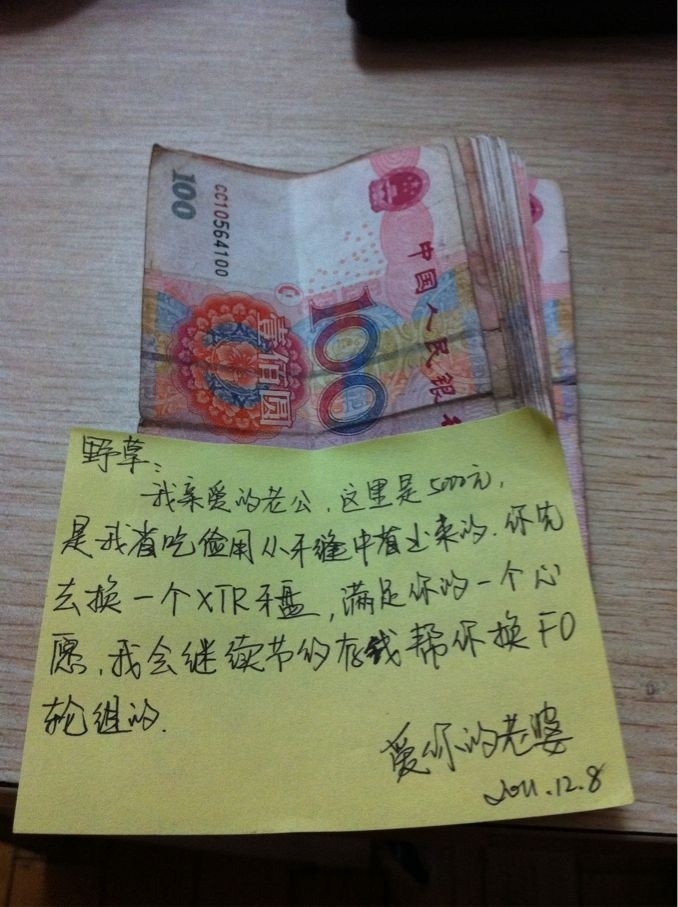 100
CC10564100
中国人民银
100
壹佰圆
野草:
我亲爱的老公,这里是5000元,
是我省吃俭用从牙缝中省出来的.你先
去换一个XTR牙盘,满足你的一个心
愿,我会继续节约存钱帮你换FD
轮组的.
爱你的老婆
2011.12.8